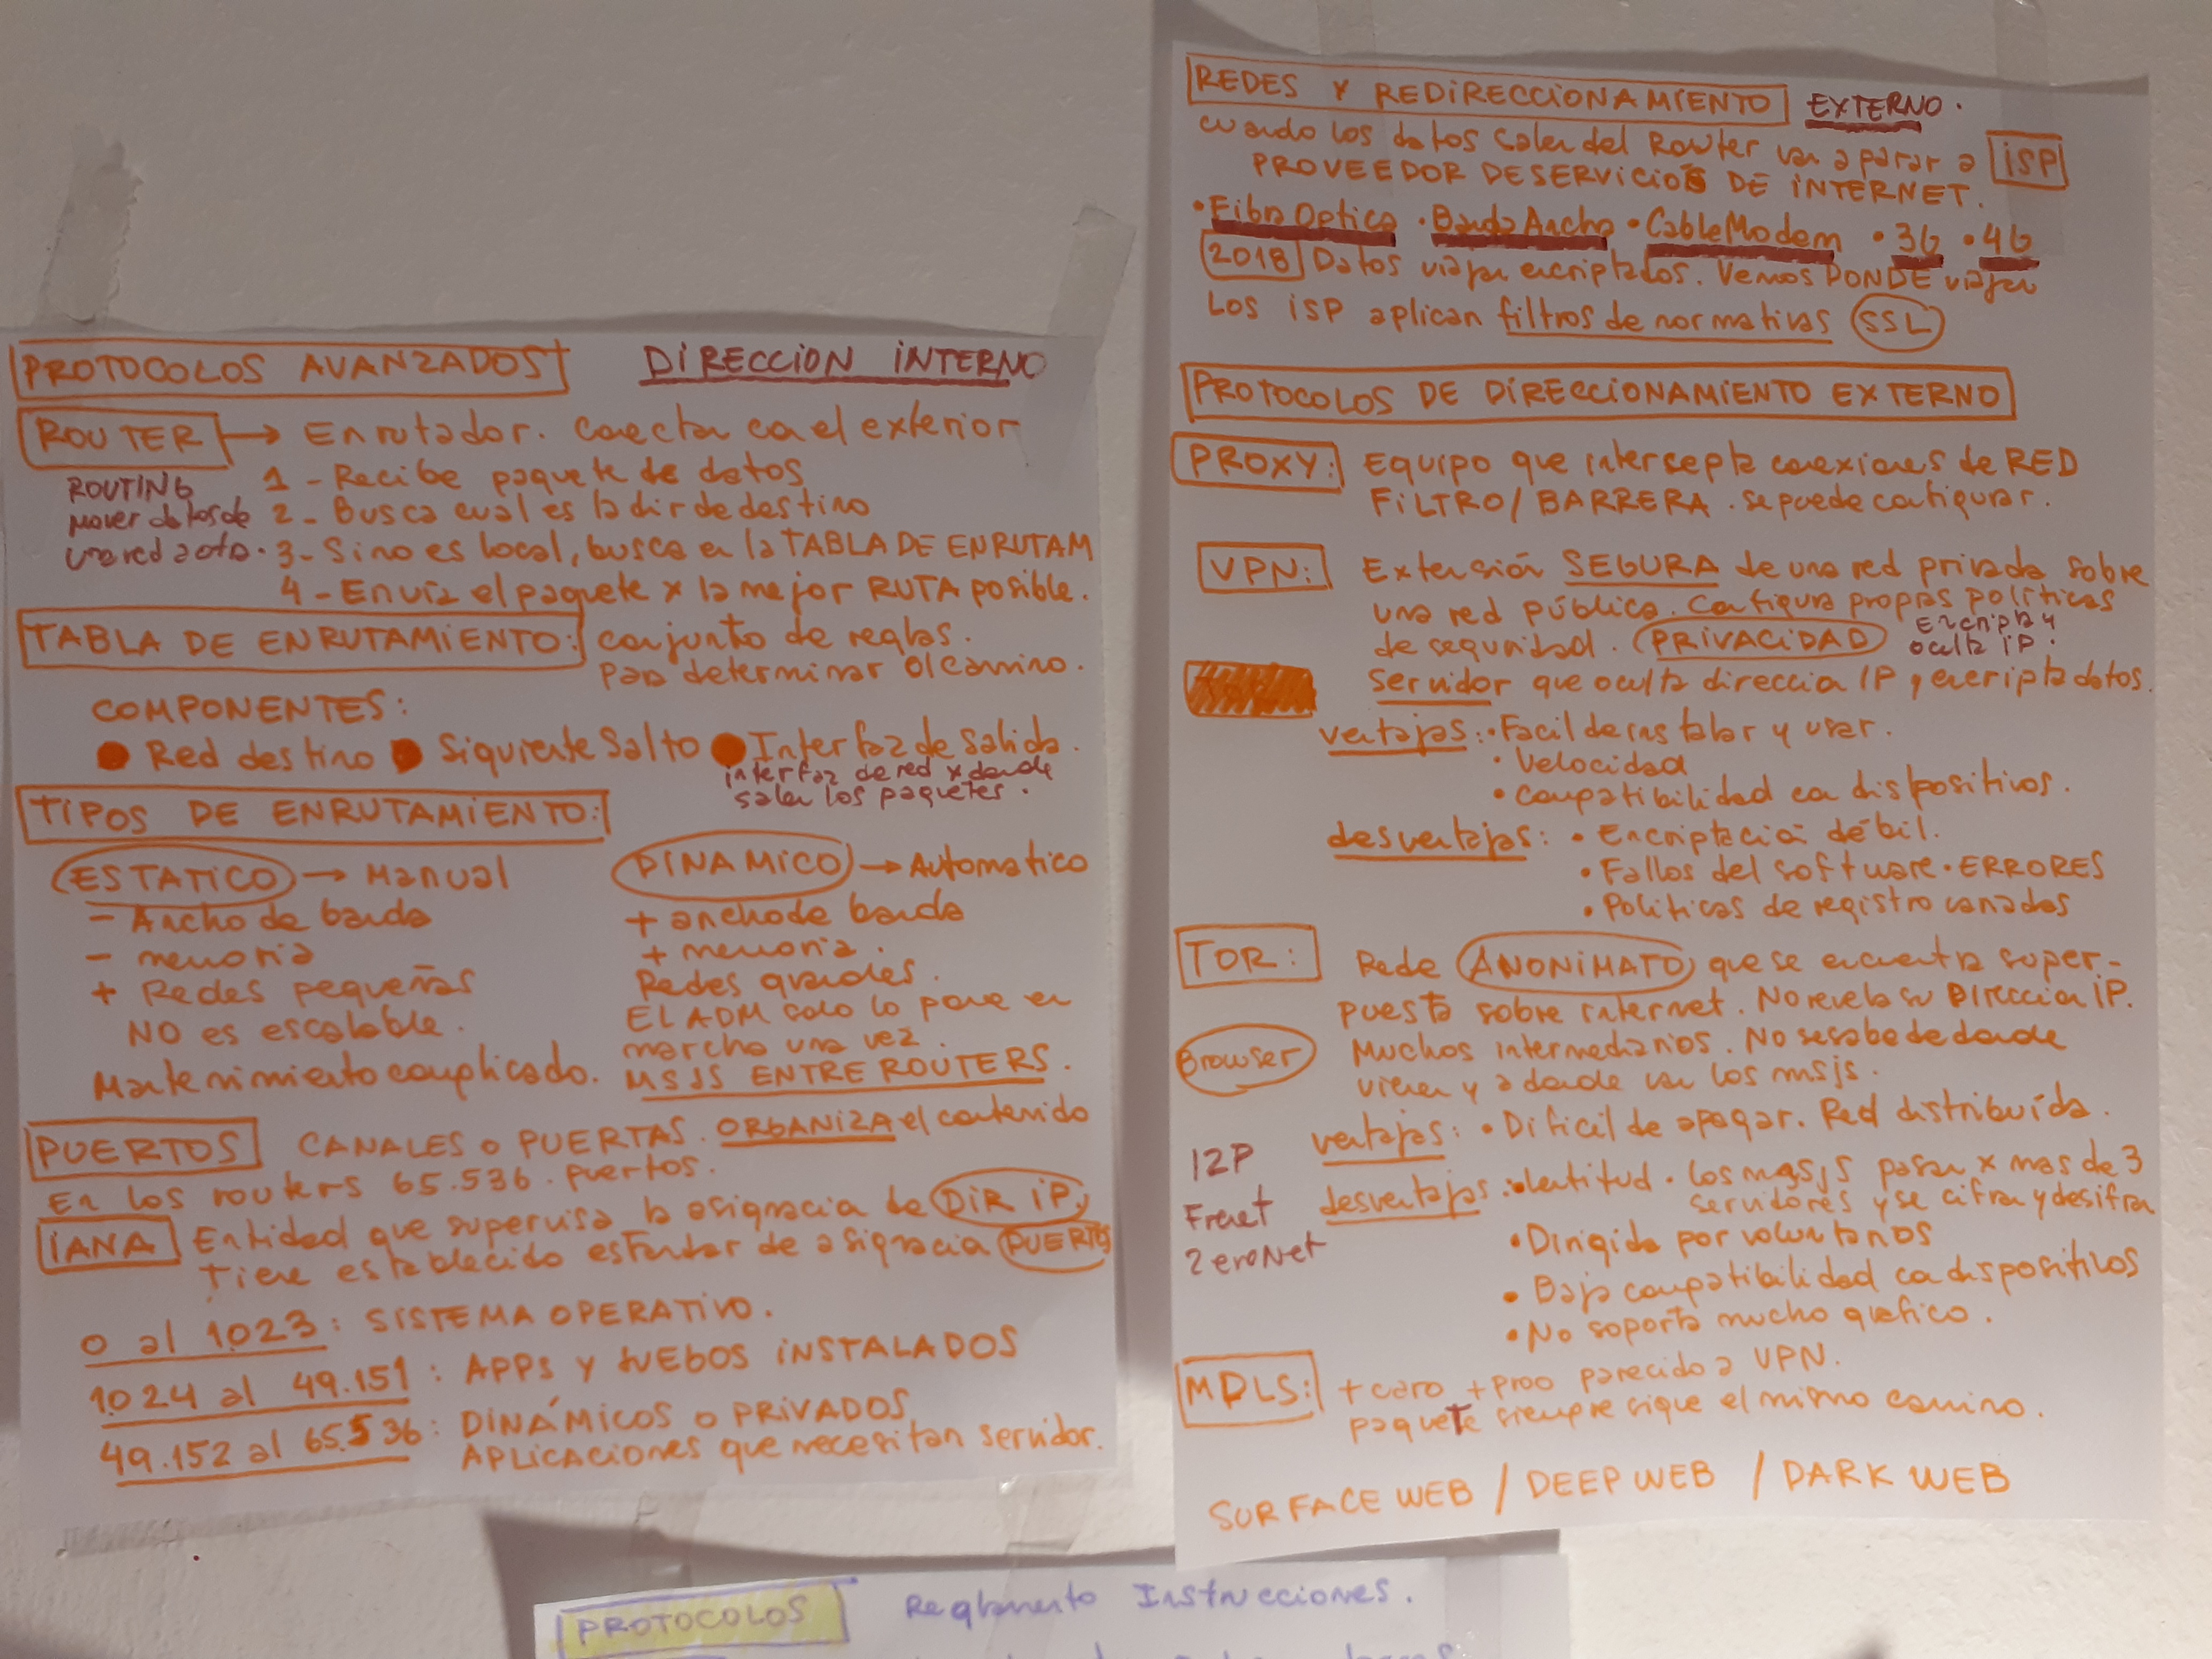 PROTOCOLOS AVANZADOS DIRECCION INTERNO
ROUTER → Enrutador. conectar con el exterior
ROUTING mover datos de una red a otra.
1 - Recibe paquete de datos
2 - Busca cual es la dir de destino
3 - Si no es local, busca en la TABLA DE ENRUTAM
4 - Envia el paquete x la mejor RUTA posible.
TABLA DE ENRUTAMIENTO: conjunto de reglas.
para determinar el camino.
COMPONENTES:
● Red destino ● Siguiente Salto ● Interfaz de salida.
interfaz de red x donde
salen los paquetes.
TIPOS DE ENRUTAMIENTO:
ESTATICO → Manual
- Ancho de banda
- memoria
+ Redes pequeñas
NO es escalable.
Mantenimiento complicado.
DINAMICO → Automatico
+ ancho de banda
+ memoria.
Redes grandes.
El ADM solo lo pone en
marcha una vez.
MSJS ENTRE ROUTERS.
PUERTOS CANALES o PUERTAS. ORGANIZA el contenido
En los routers 65.536. puertos.
IANA Entidad que supervisa la asignacion de DIR IP,
Tiene establecido estandar de asignacion PUERTOS
0 al 1023: SISTEMA OPERATIVO.
1024 al 49.151: APPS y JUEGOS INSTALADOS
49.152 al 65.536: DINÁMICOS O PRIVADOS
APLICACIONES que necesitan servidor.
REDES Y REDIRECCIONAMIENTO EXTERNO.
cuando los datos salen del Router van a parar a ISP
PROVEEDOR DE SERVICIOS DE INTERNET.
• Fibra Optica • Banda Ancha • Cable Modem • 3G • 4G
2018 Datos viajan encriptados. Vemos DONDE viajan
Los ISP aplican filtros de normativas SSL
PROTOCOLOS DE DIRECCIONAMIENTO EXTERNO
PROXY: Equipo que intercepta conexiones de RED
FILTRO / BARRERA. se puede configurar.
VPN: Extensión SEGURA de una red privada sobre
una red pública. Configura propias políticas
de seguridad. PRIVACIDAD Encripta y
oculta IP.
Servidor que oculta direccion IP y encripta datos.
ventajas: • Facil de instalar y usar.
• Velocidad
• Compatibilidad con dispositivos.
desventajas: • Encriptacion débil.
• Fallos del software. ERRORES
• Politicas de registro variadas
TOR: Rede ANONIMATO que se encuentra super-
puesta sobre internet. No revela su Direccion IP.
Browser Muchos intermediarios. No se sabe de donde
vienen y a donde van los msjs.
ventajas: • Dificil de apagar. Red distribuída.
I2P
Freet
ZeroNet
desventajas: • lentitud. Los msjs pasan x mas de 3
servidores y se cifra y desifra
• Dirigida por voluntarios
• Baja compatibilidad con dispositivos
• No soporta mucho grafico.
MPLS: + caro + proo parecido a VPN.
paquete siempre sigue el mismo camino.
SURFACE WEB / DEEP WEB / DARK WEB
PROTOCOLOS Reglamento Instrucciones.